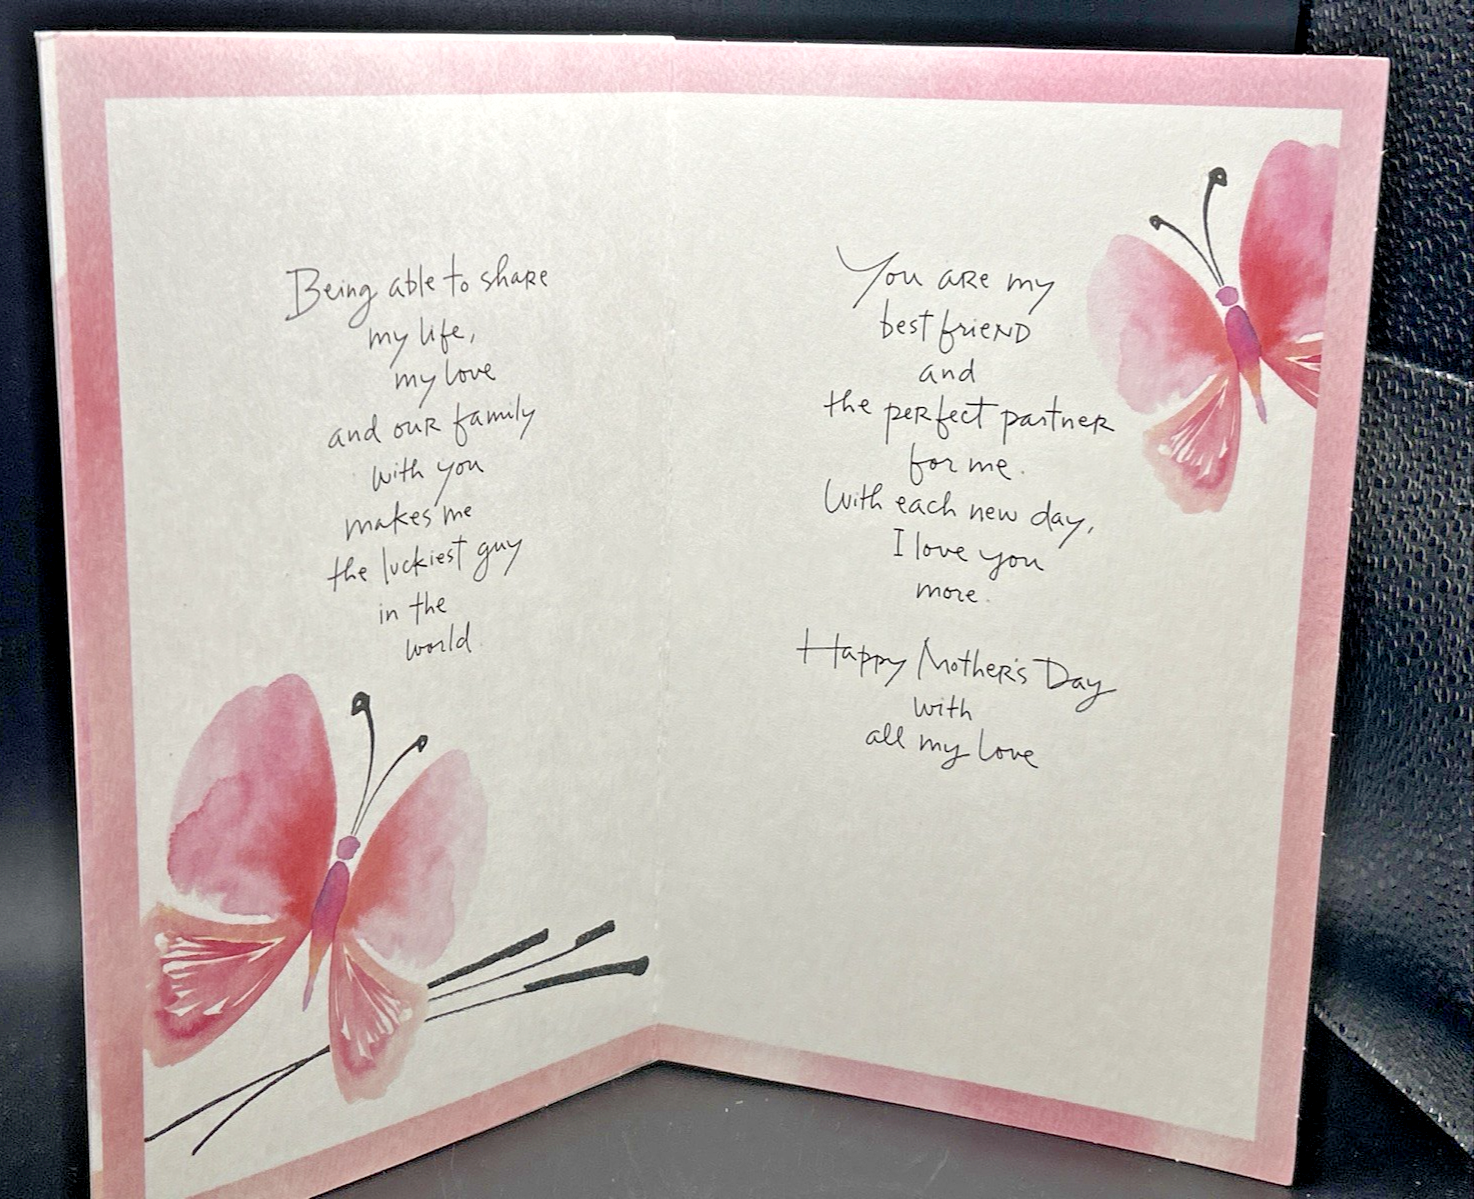 Being able to share
my life,
my love
and our family
with you
makes me
the luckiest guy
in the
world.
You are my
best friend
and
the perfect partner
for me.
With each new day,
I love you
more.
Happy Mother's Day
with
all my love